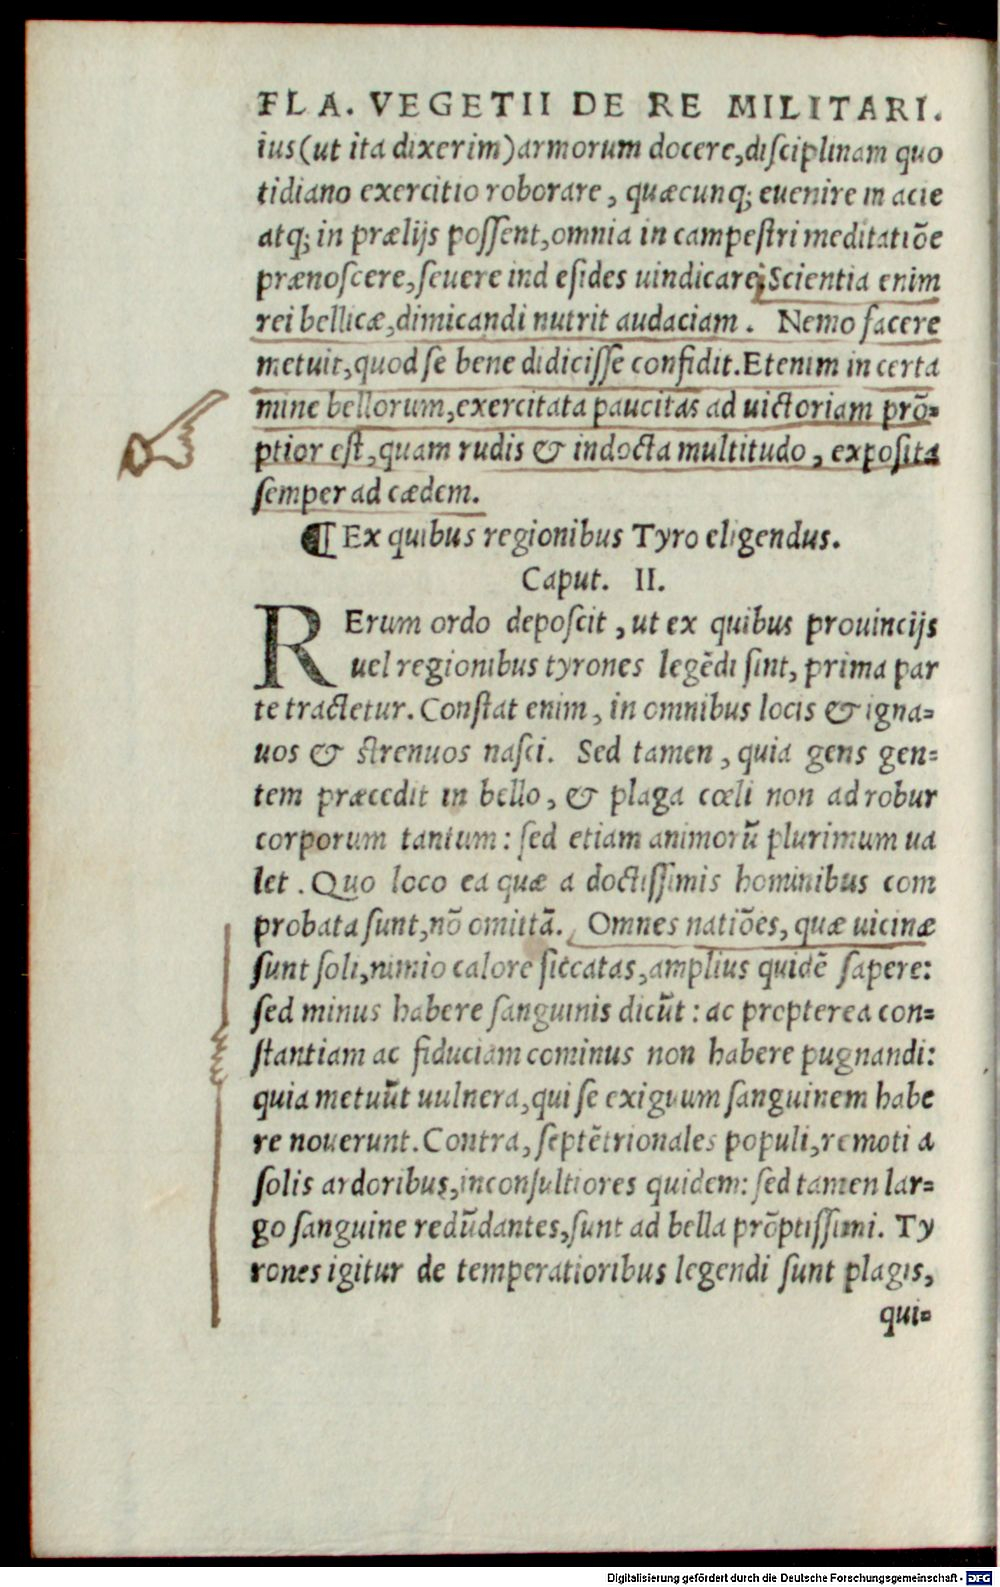 FLA. VEGETII DE RE MILITARI.
ius(ut ita dixerim)armorum docere,diſciplinam quo
tidiano exercitio roborare, quæcunq; euenire in acie
atq; in prælijs poſſent,omnia in campeſtri meditatiõe
prænoſcere,ſeuere in deſides uindicare.Scientia enim
rei bellicæ,dimicandi nutrit audaciam. Nemo facere
metuit,quod ſe bene didiciſſe confidit.Etenim in certa
mine bellorum,exercitata paucitas ad uictoriam prõ=
ptior eſt,quam rudis & indocta multitudo, expoſita
ſemper ad cædem.
¶ Ex quibus regionibus Tyro eligendus.
Caput. II.
RErum ordo depoſcit, ut ex quibus prouincijs
uel regionibus tyrones legẽdi ſint, prima par
te tractetur. Conſtat enim, in omnibus locis & igna=
uos & ſtrenuos naſci. Sed tamen, quia gens gen=
tem præcedit in bello, & plaga cœli non ad robur
corporum tantum: ſed etiam animorũ plurimum ua
let. Quo loco ea quæ a doctiſſimis hominibus com
probata ſunt,nõ omittã. Omnes natiões, quæ uicinæ
ſunt ſoli,nimio calore ſiccatas,amplius quidẽ ſapere:
ſed minus habere ſanguinis dicũt: ac propterea con=
ſtantiam ac fiduciam cominus non habere pugnandi:
quia metuũt uulnera,qui ſe exiguum ſanguinem habe
re nouerunt. Contra, ſeptẽtrionales populi,remoti a
ſolis ardoribus,inconſultiores quidem: ſed tamen lar=
go ſanguine redũdantes,ſunt ad bella prõptiſſimi. Ty
rones igitur de temperatioribus legendi ſunt plagis,
qui=
Digitalisierung gefördert durch die Deutsche Forschungsgemeinschaft - DFG